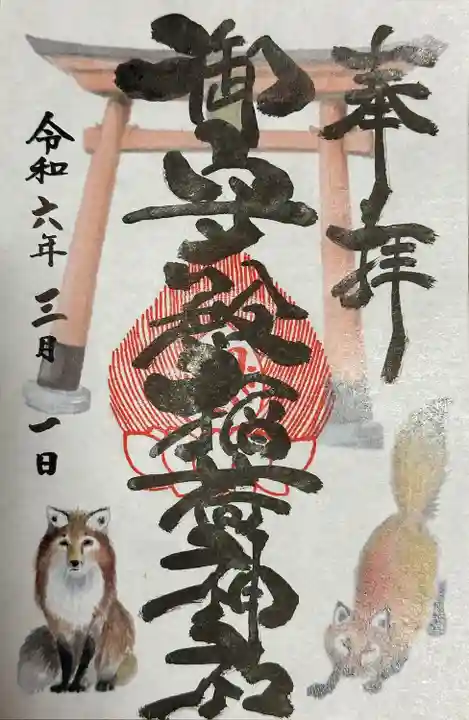 奉拝
御守殿稲荷神社
令和六年三月一日